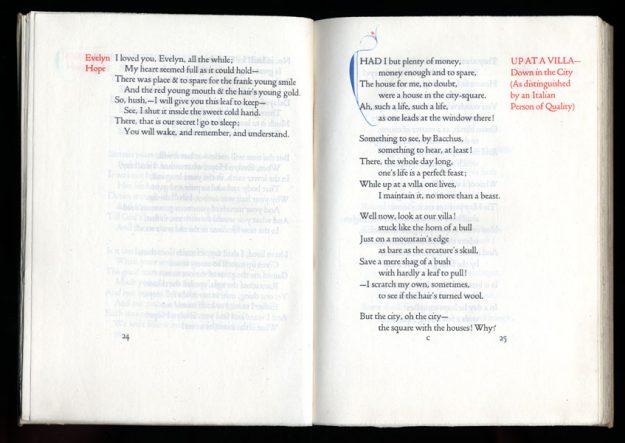 Evelyn
Hope
I loved you, Evelyn, all the while;
My heart seemed full as it could hold—
There was place & to spare for the frank young smile
And the red young mouth & the hair's young gold.
So, hush,—I will give you this leaf to keep—
See, I shut it inside the sweet cold hand.
There, that is our secret! go to sleep;
You will wake, and remember, and understand.
24
HAD I but plenty of money,
money enough and to spare,
The house for me, no doubt,
were a house in the city-square.
Ah, such a life, such a life,
as one leads at the window there!
UP AT A VILLA—
Down in the City
(As distinguished
by an Italian
Person of Quality)
Something to see, by Bacchus,
something to hear, at least!
There, the whole day long,
one's life is a perfect feast;
While up at a villa one lives,
I maintain it, no more than a beast.
Well now, look at our villa!
stuck like the horn of a bull
Just on a mountain's edge
as bare as the creature's skull,
Save a mere shag of a bush
with hardly a leaf to pull!
—I scratch my own, sometimes,
to see if the hair's turned wool.
But the city, oh the city—
the square with the houses! Why?
c
25